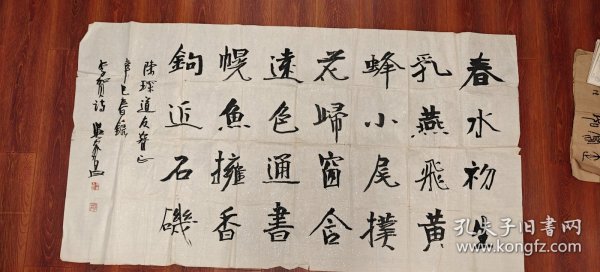 春水初生
乳燕飛黄
蜂小尾撲
花歸窗含
遠色通書
幌魚擁香
鉤近石磯
陳琛道友督正
辛巳春錄
李賀詩
孔夫子旧书网
www.kongfz.com